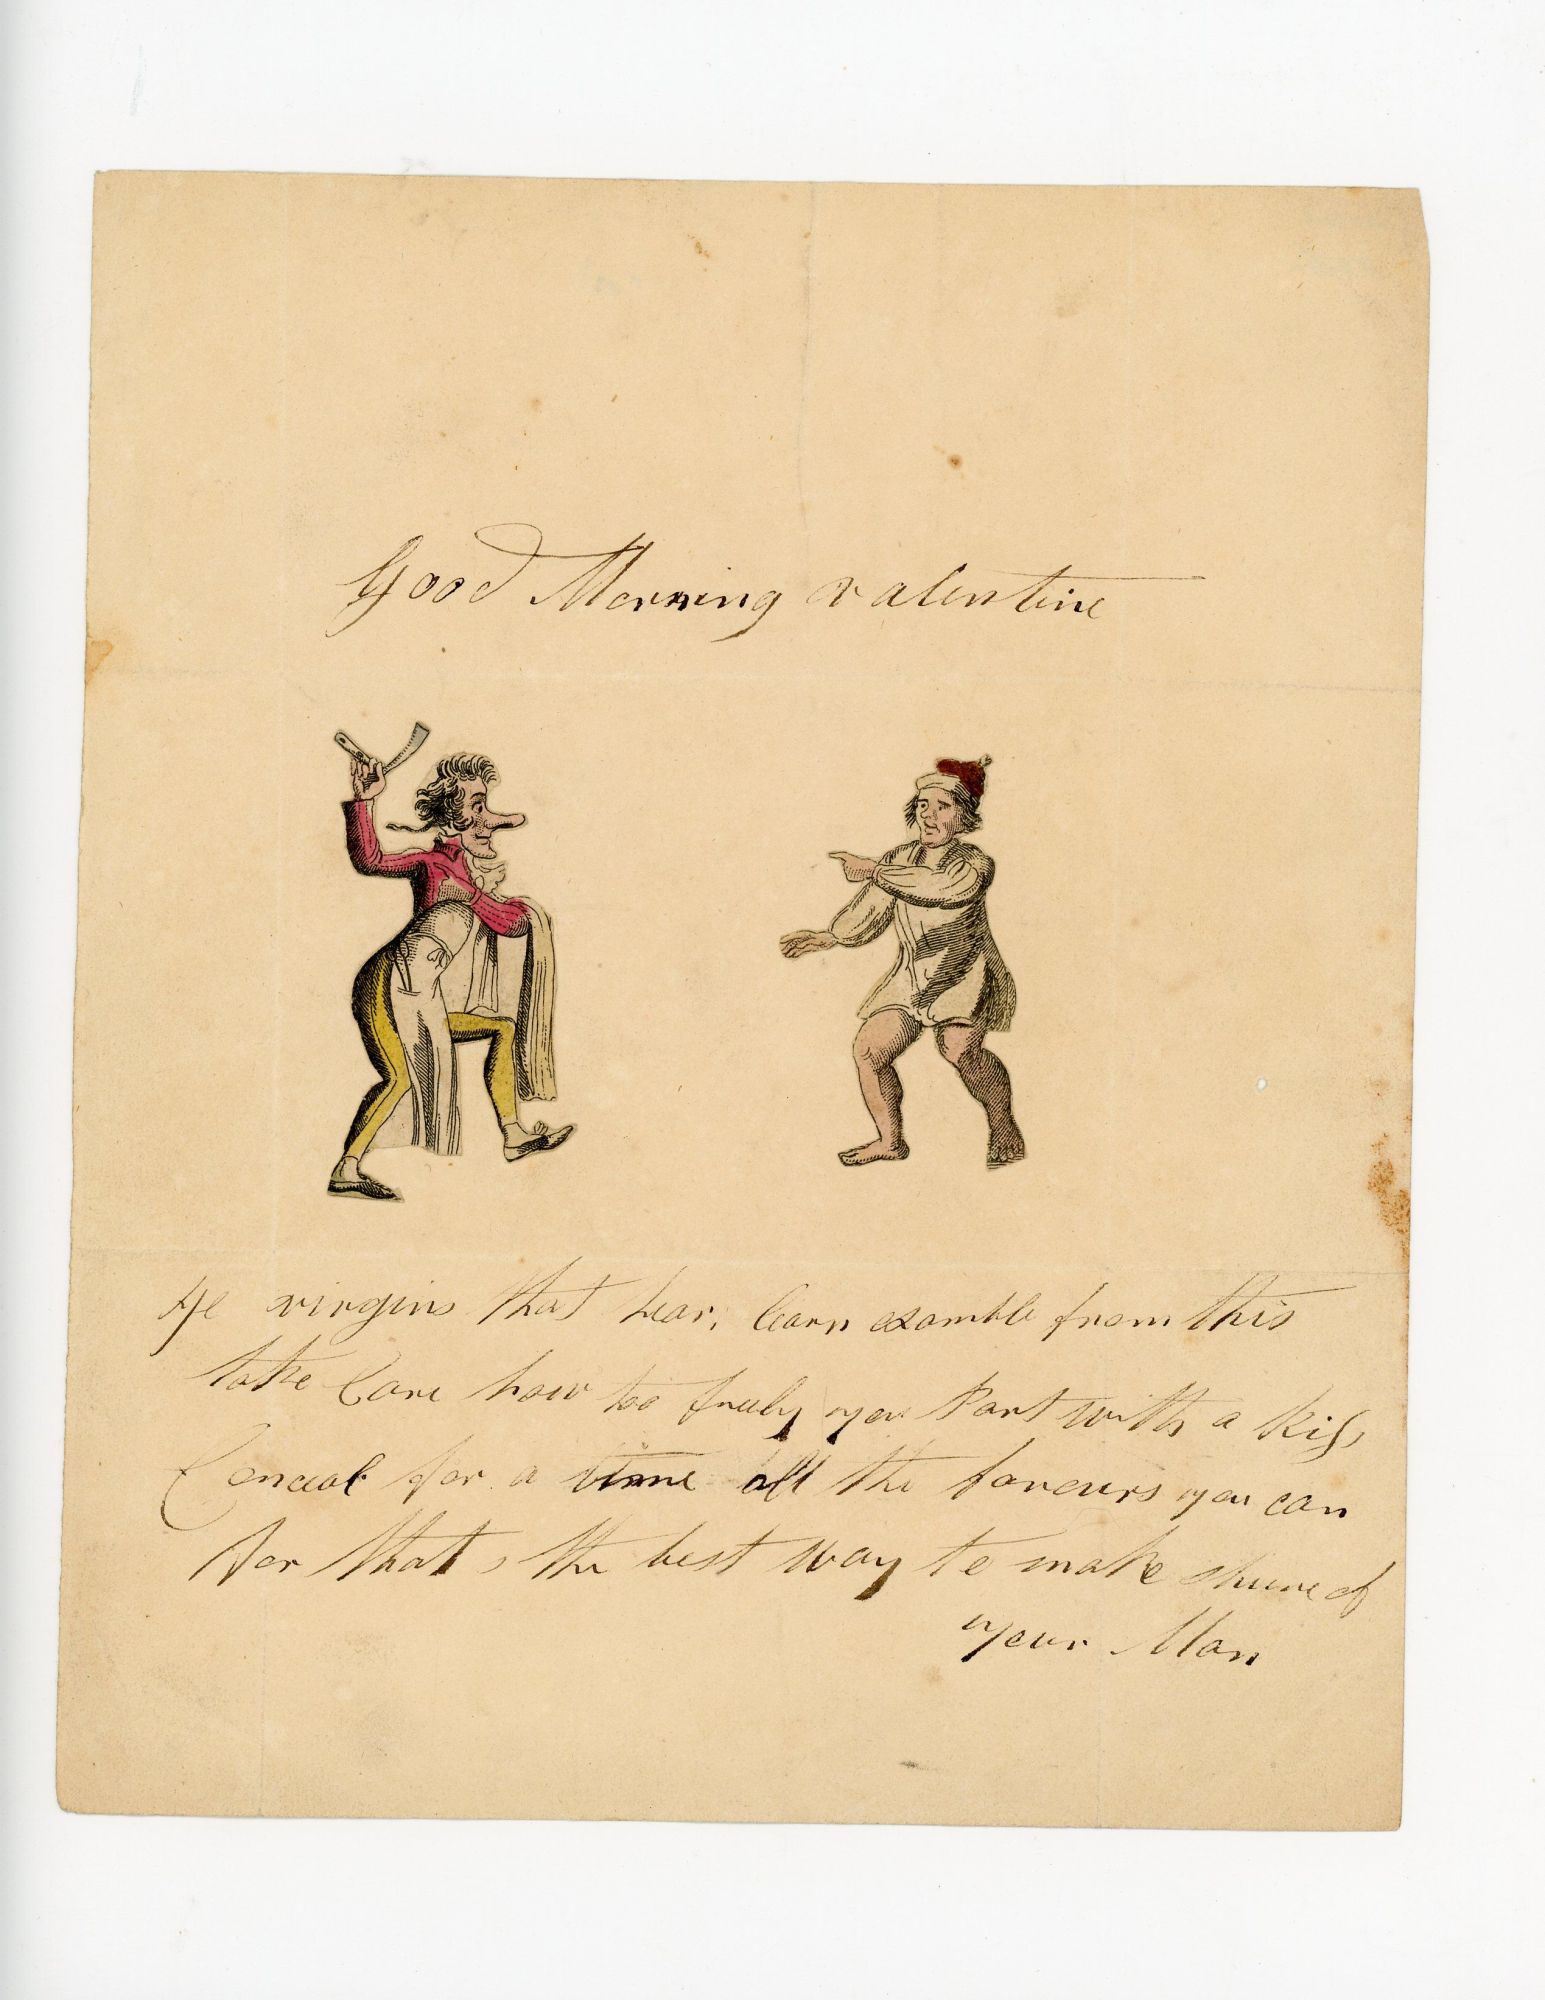 Good Morning valentine
Ye virgins that hear, learn examble from this
take Care how too freely you Part with a kiss
Conceal for a time all the favours you can
for that,s the best way to make shure of
your Man